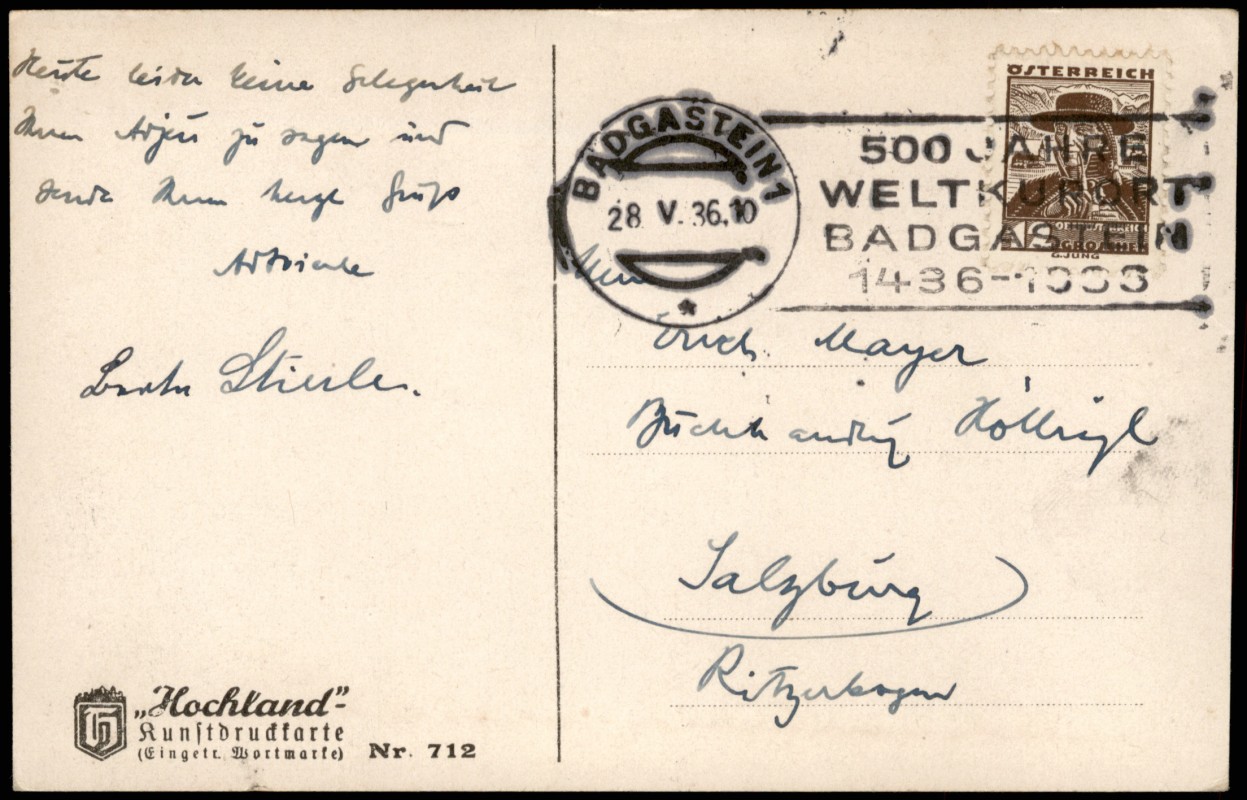 Heute leider keine Gelegenheit
Ihnen Adjeu zu sagen und
sende Ihnen herzl Gruß
Berta
ÖSTERREICH
GROSCHEN
G.JUNG
BADGASTEIN 1
28 V.36.10
*
500 JAHRE
WELTKURORT
BADGASTEIN
1436-1936
Erich Mayer
Buchhandlg Höllrigl
Salzburg
Ritzerbogen
„Hochland"-
Kunstdruckkarte
(Eingetr. Wortmarke) Nr. 712